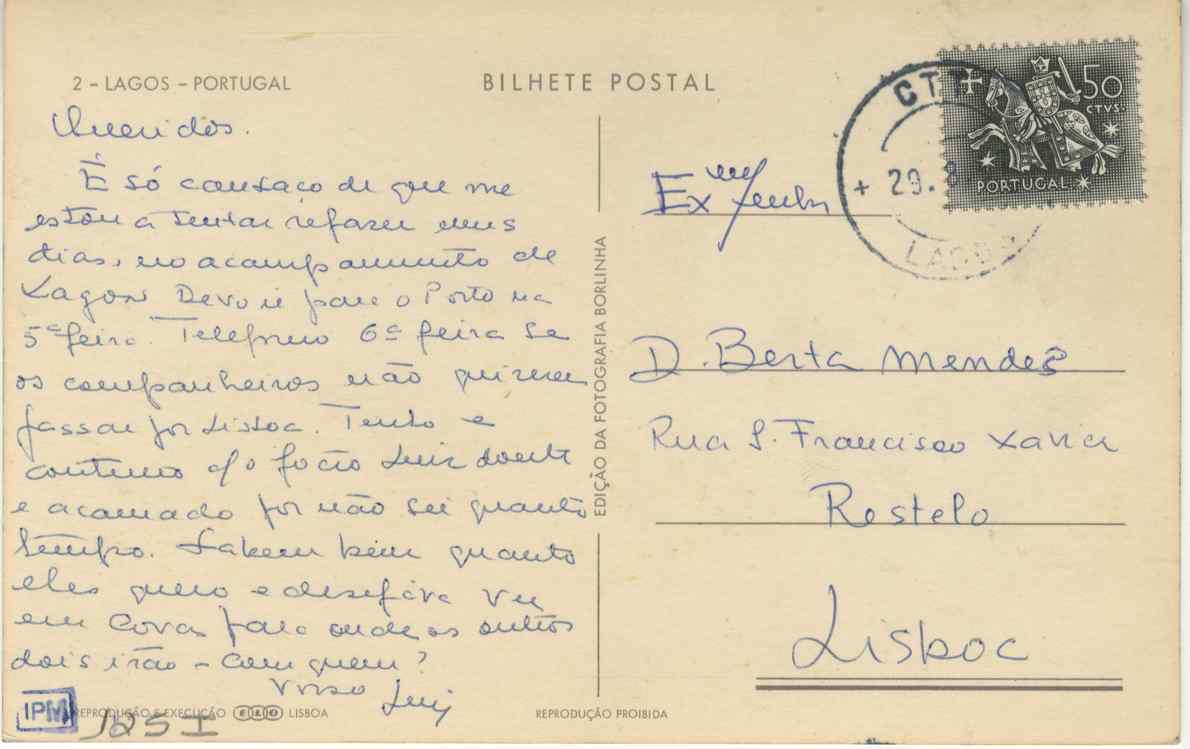 2 – LAGOS – PORTUGAL
BILHETE POSTAL
Queridos.
É só cansaço de que me
estou a tentar refazer uns
dias, no acampamento de
Lagos. Devo ir para o Porto na
5ª feira. Telefono 6ª feira se
os companheiros não quizerem
passar por Lisboa. Tento e
continuo c/ o João Luiz doente
e acamado por não sei quanto
tempo. Sabem bem quanto
eles quero e desejava ver
em Covas para onde os outros
dois irão – Com quem?
Vosso Luiz
IPM
REPRODUÇÃO E EXECUÇÃO ELO LISBOA
125 I
EDIÇÃO DA FOTOGRAFIA BORLINHA
REPRODUÇÃO PROIBIDA
CTT
+ 29.
LAGOS
50
CTVS.
PORTUGAL
Exma Senhora
D. Berta Mendes
Rua S. Francisco Xavier
Restelo
Lisboa